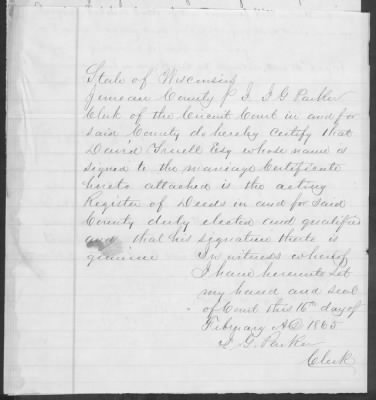 State of Wisconsin
Juneau County } I, I G Parker
Clerk of the Circuit Court in and for
said County do hereby certify that
David Truell Esq whose name is
signed to the marriage Certificate
hereto attached is the acting
Register of Deeds in and for said
County duly elected and qualified
and that his signature thereto is
genuine In witness whereof
I have hereunto set
my hand and seal
of Court this 16th day of
February AD 1865
I. G. Parker
Clerk